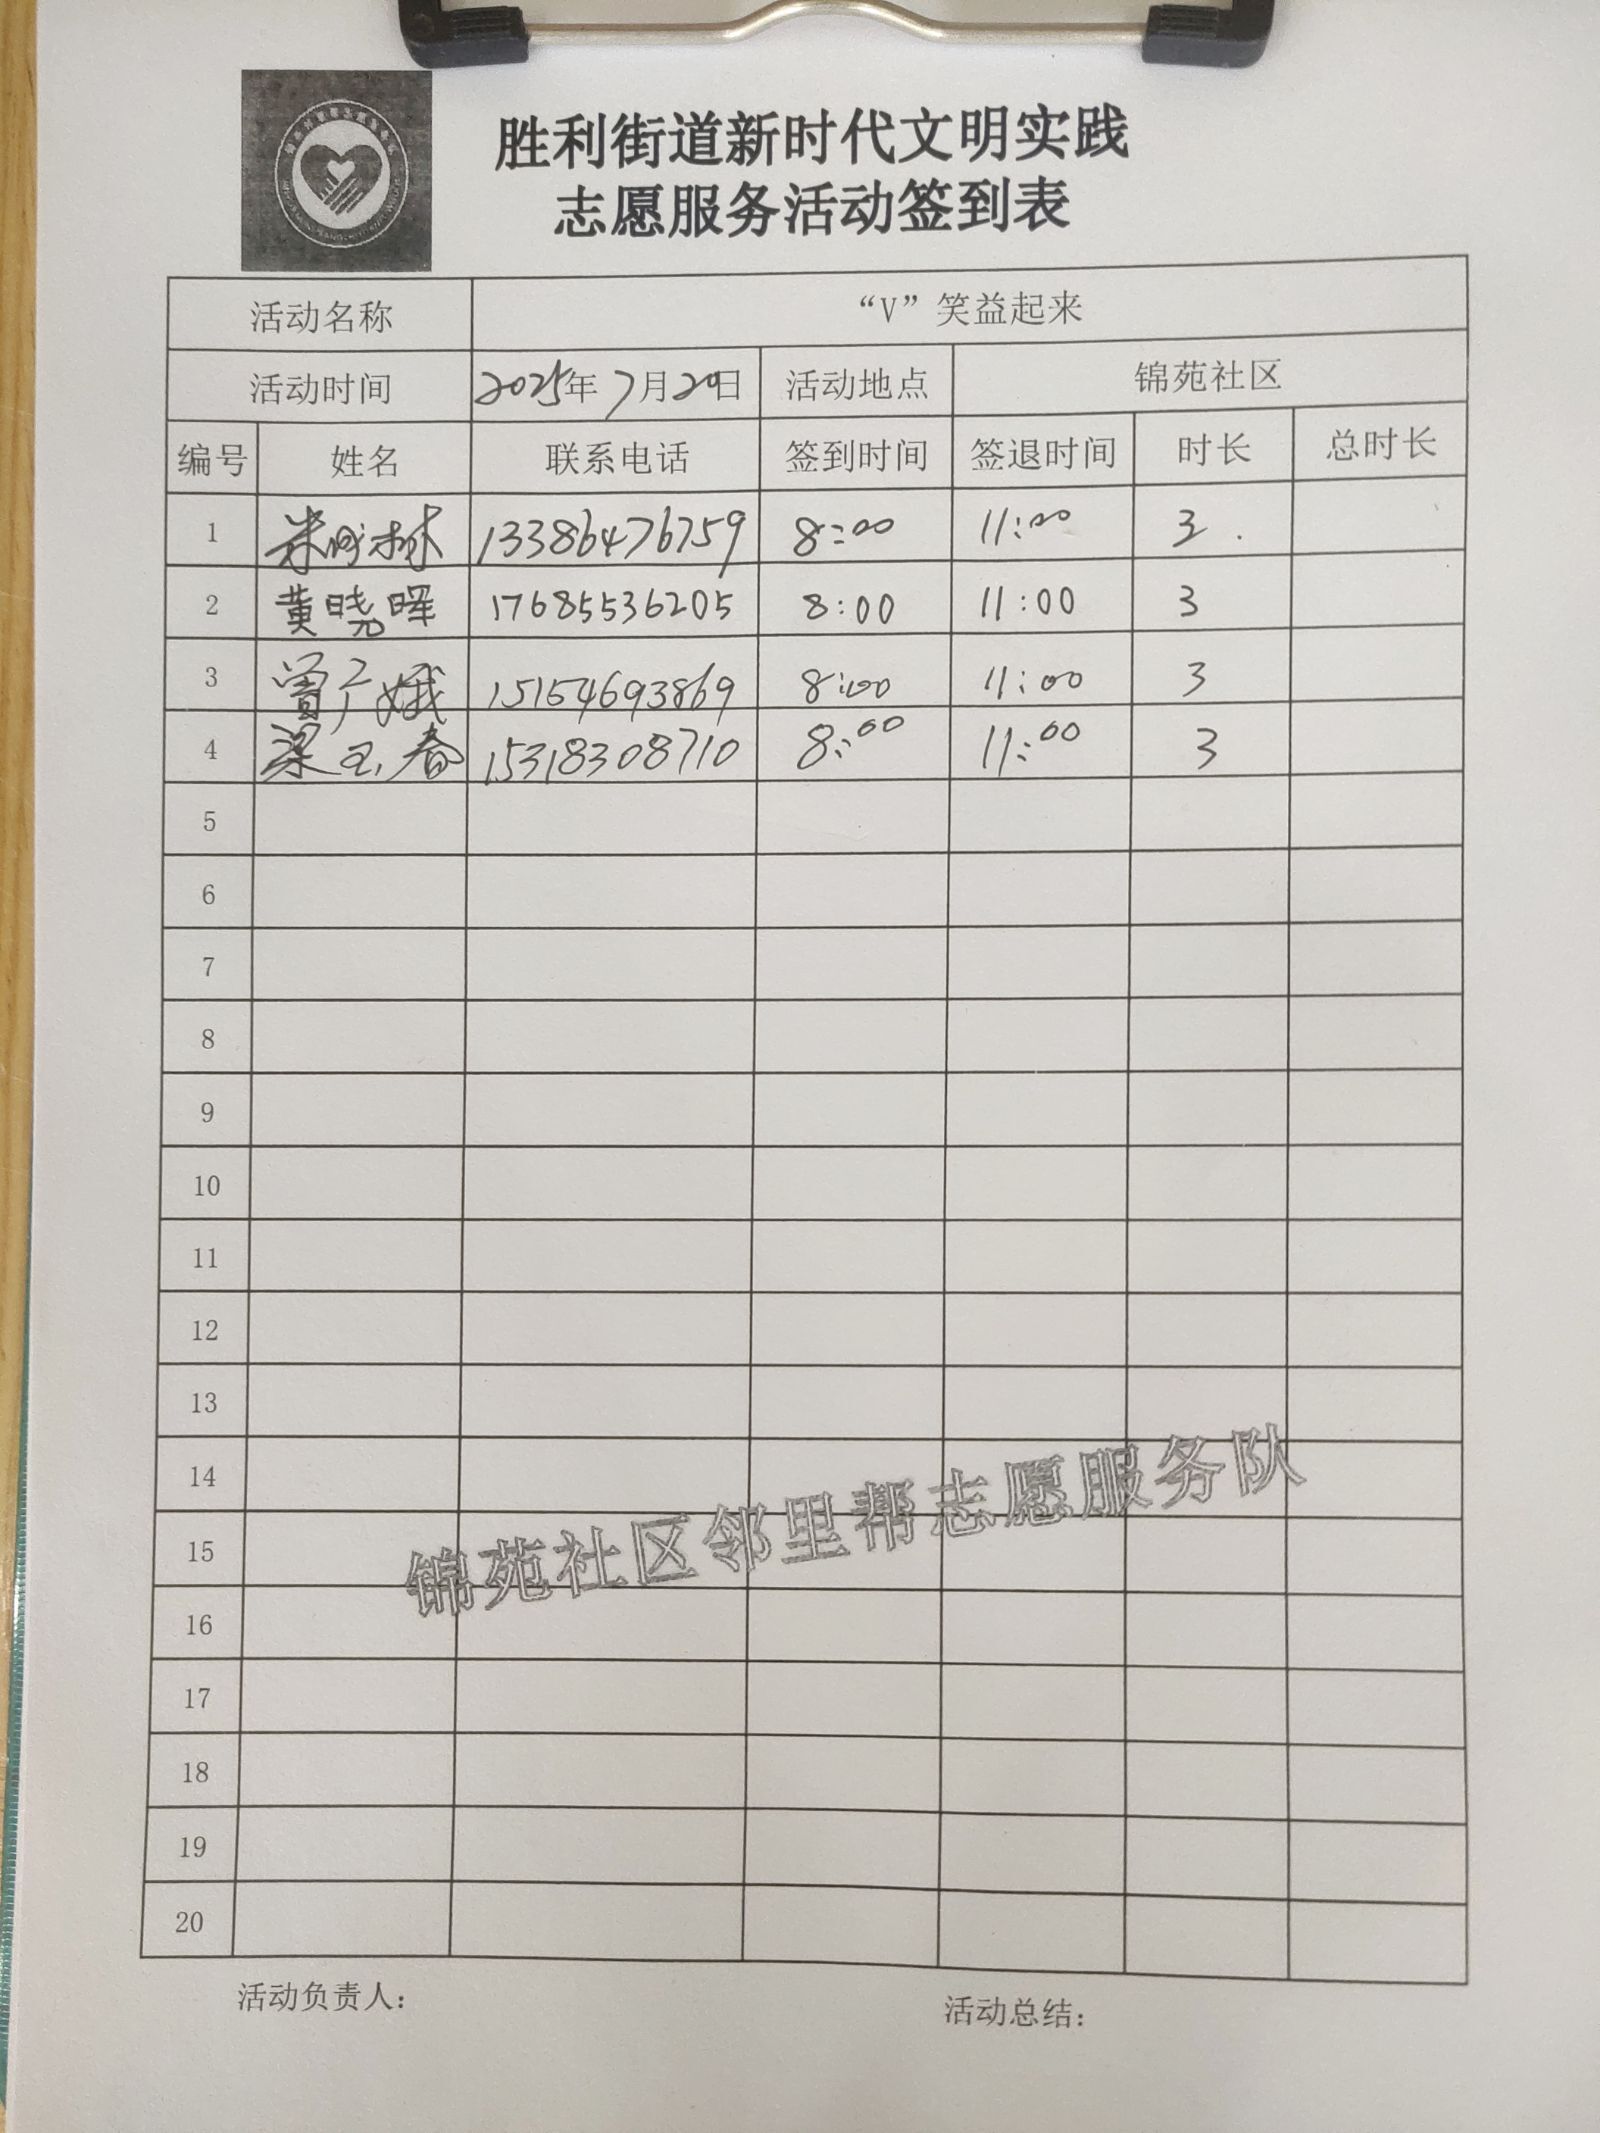 胜利街道新时代文明实践
志愿服务活动签到表
活动名称 “V”笑益起来
活动时间 2025年7月20日 活动地点 锦苑社区
编号 姓名 联系电话 签到时间 签退时间 时长 总时长
1 13386476759 8:00 11:00 3.
2 黄晓晖 17685536205 8:00 11:00 3
3 曾广娥 15154693869 8:00 11:00 3
4 梁玉春 15318308710 8:00 11:00 3
5
6
7
8
9
10
11
12
13
14
15
16
17
18
19
20
锦苑社区邻里帮志愿服务队
活动负责人： 活动总结：